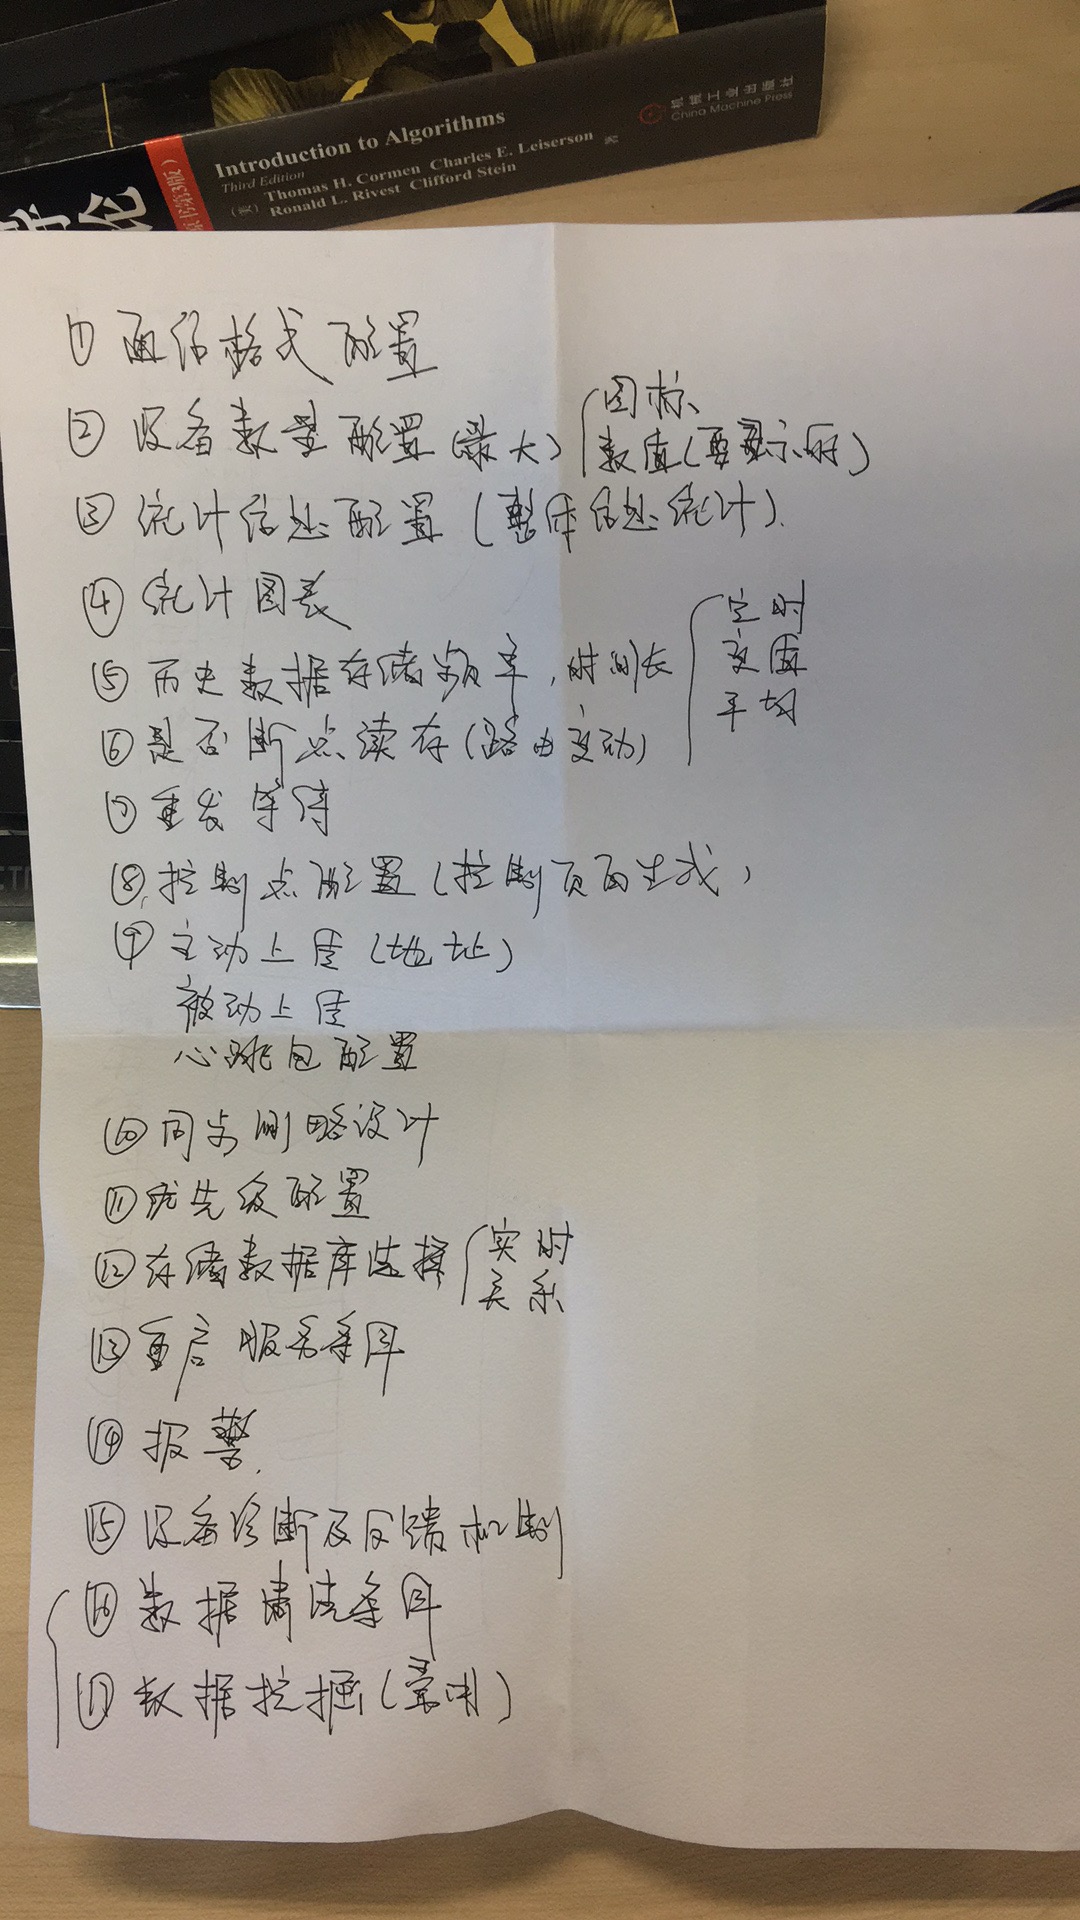 Introduction to Algorithms
Third Edition
(美) Thomas H. Cormen Charles E. Leiserson 著
Ronald L. Rivest Clifford Stein
机械工业出版社
China Machine Press
① 通信格式配置
② 设备数量配置(最大) 图标
数值(要显示的)
③ 统计信息配置(整体信息统计).
④ 统计图表
⑤ 历史数据存储频率,时间长 定时
变值
平均
⑥ 是否断点续存(路由变动)
⑦ 重发等待
⑧ 控制点配置(控制页面生成)
⑨ 主动上传(地址)
被动上传
心跳包配置
⑩ 同步策略设计
⑪ 优先级配置
⑫ 存储数据库选择 实时
关系
⑬ 重启服务条件
⑭ 报警.
⑮ 设备诊断及反馈机制
⑯ 数据清洗条件
⑰ 数据挖掘(常用)